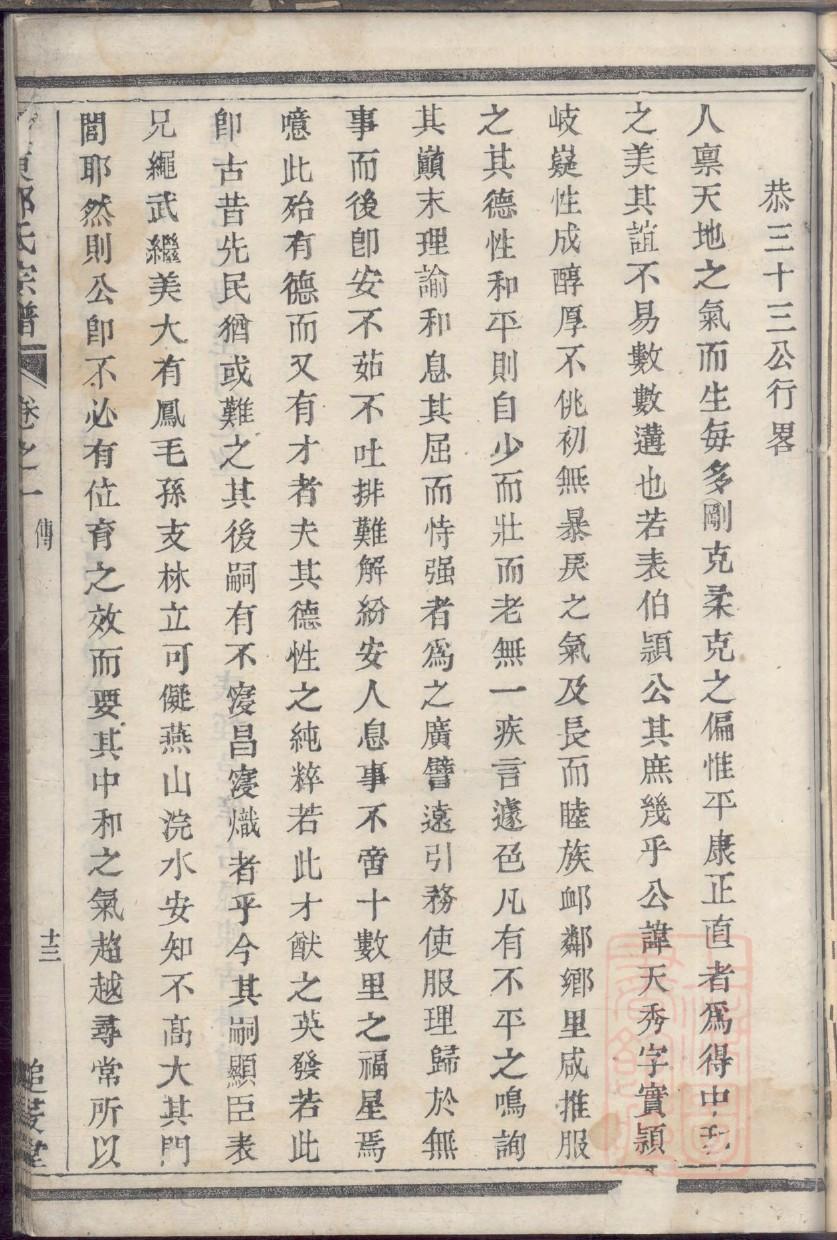 恭三十三公行畧
人禀天地之氣而生每多剛克柔克之偏惟平康正直者爲得中和
之美其誼不易數數遘也若表伯頴公其庶幾乎公諱天秀字實頴
岐嶷性成醇厚不佻初無暴戾之氣及長而睦族卹鄰鄉里咸推服
之其德性和平則自少而壯而老無一疾言遽色凡有不平之鳴詢
其巔末理諭和息其屈而恃强者爲之廣譬遠引務使服理歸於無
事而後卽安不茹不吐排難解紛安人息事不啻十數里之福星焉
噫此殆有德而又有才者夫其德性之純粹若此才猷之英發若此
卽古昔先民猶或難之其後嗣有不寖昌寖熾者乎今其嗣顯臣表
兄繩武繼美大有鳳毛孫支林立可儗燕山浣水安知不高大其門
閭耶然則公卽不必有位育之效而要其中和之氣超越尋常所以
氏宗譜
卷之一
傳
十三
追遠堂